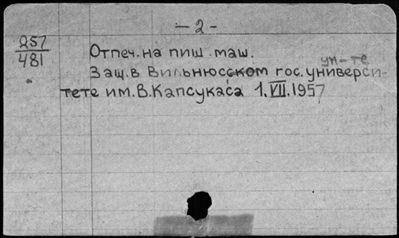 — 2 —
257
481
Отпеч. на пиш. маш.
ун-те
Защ. в Вильнюсском гос. универси-
тете им. В. Капсукаса 1.VII.1957